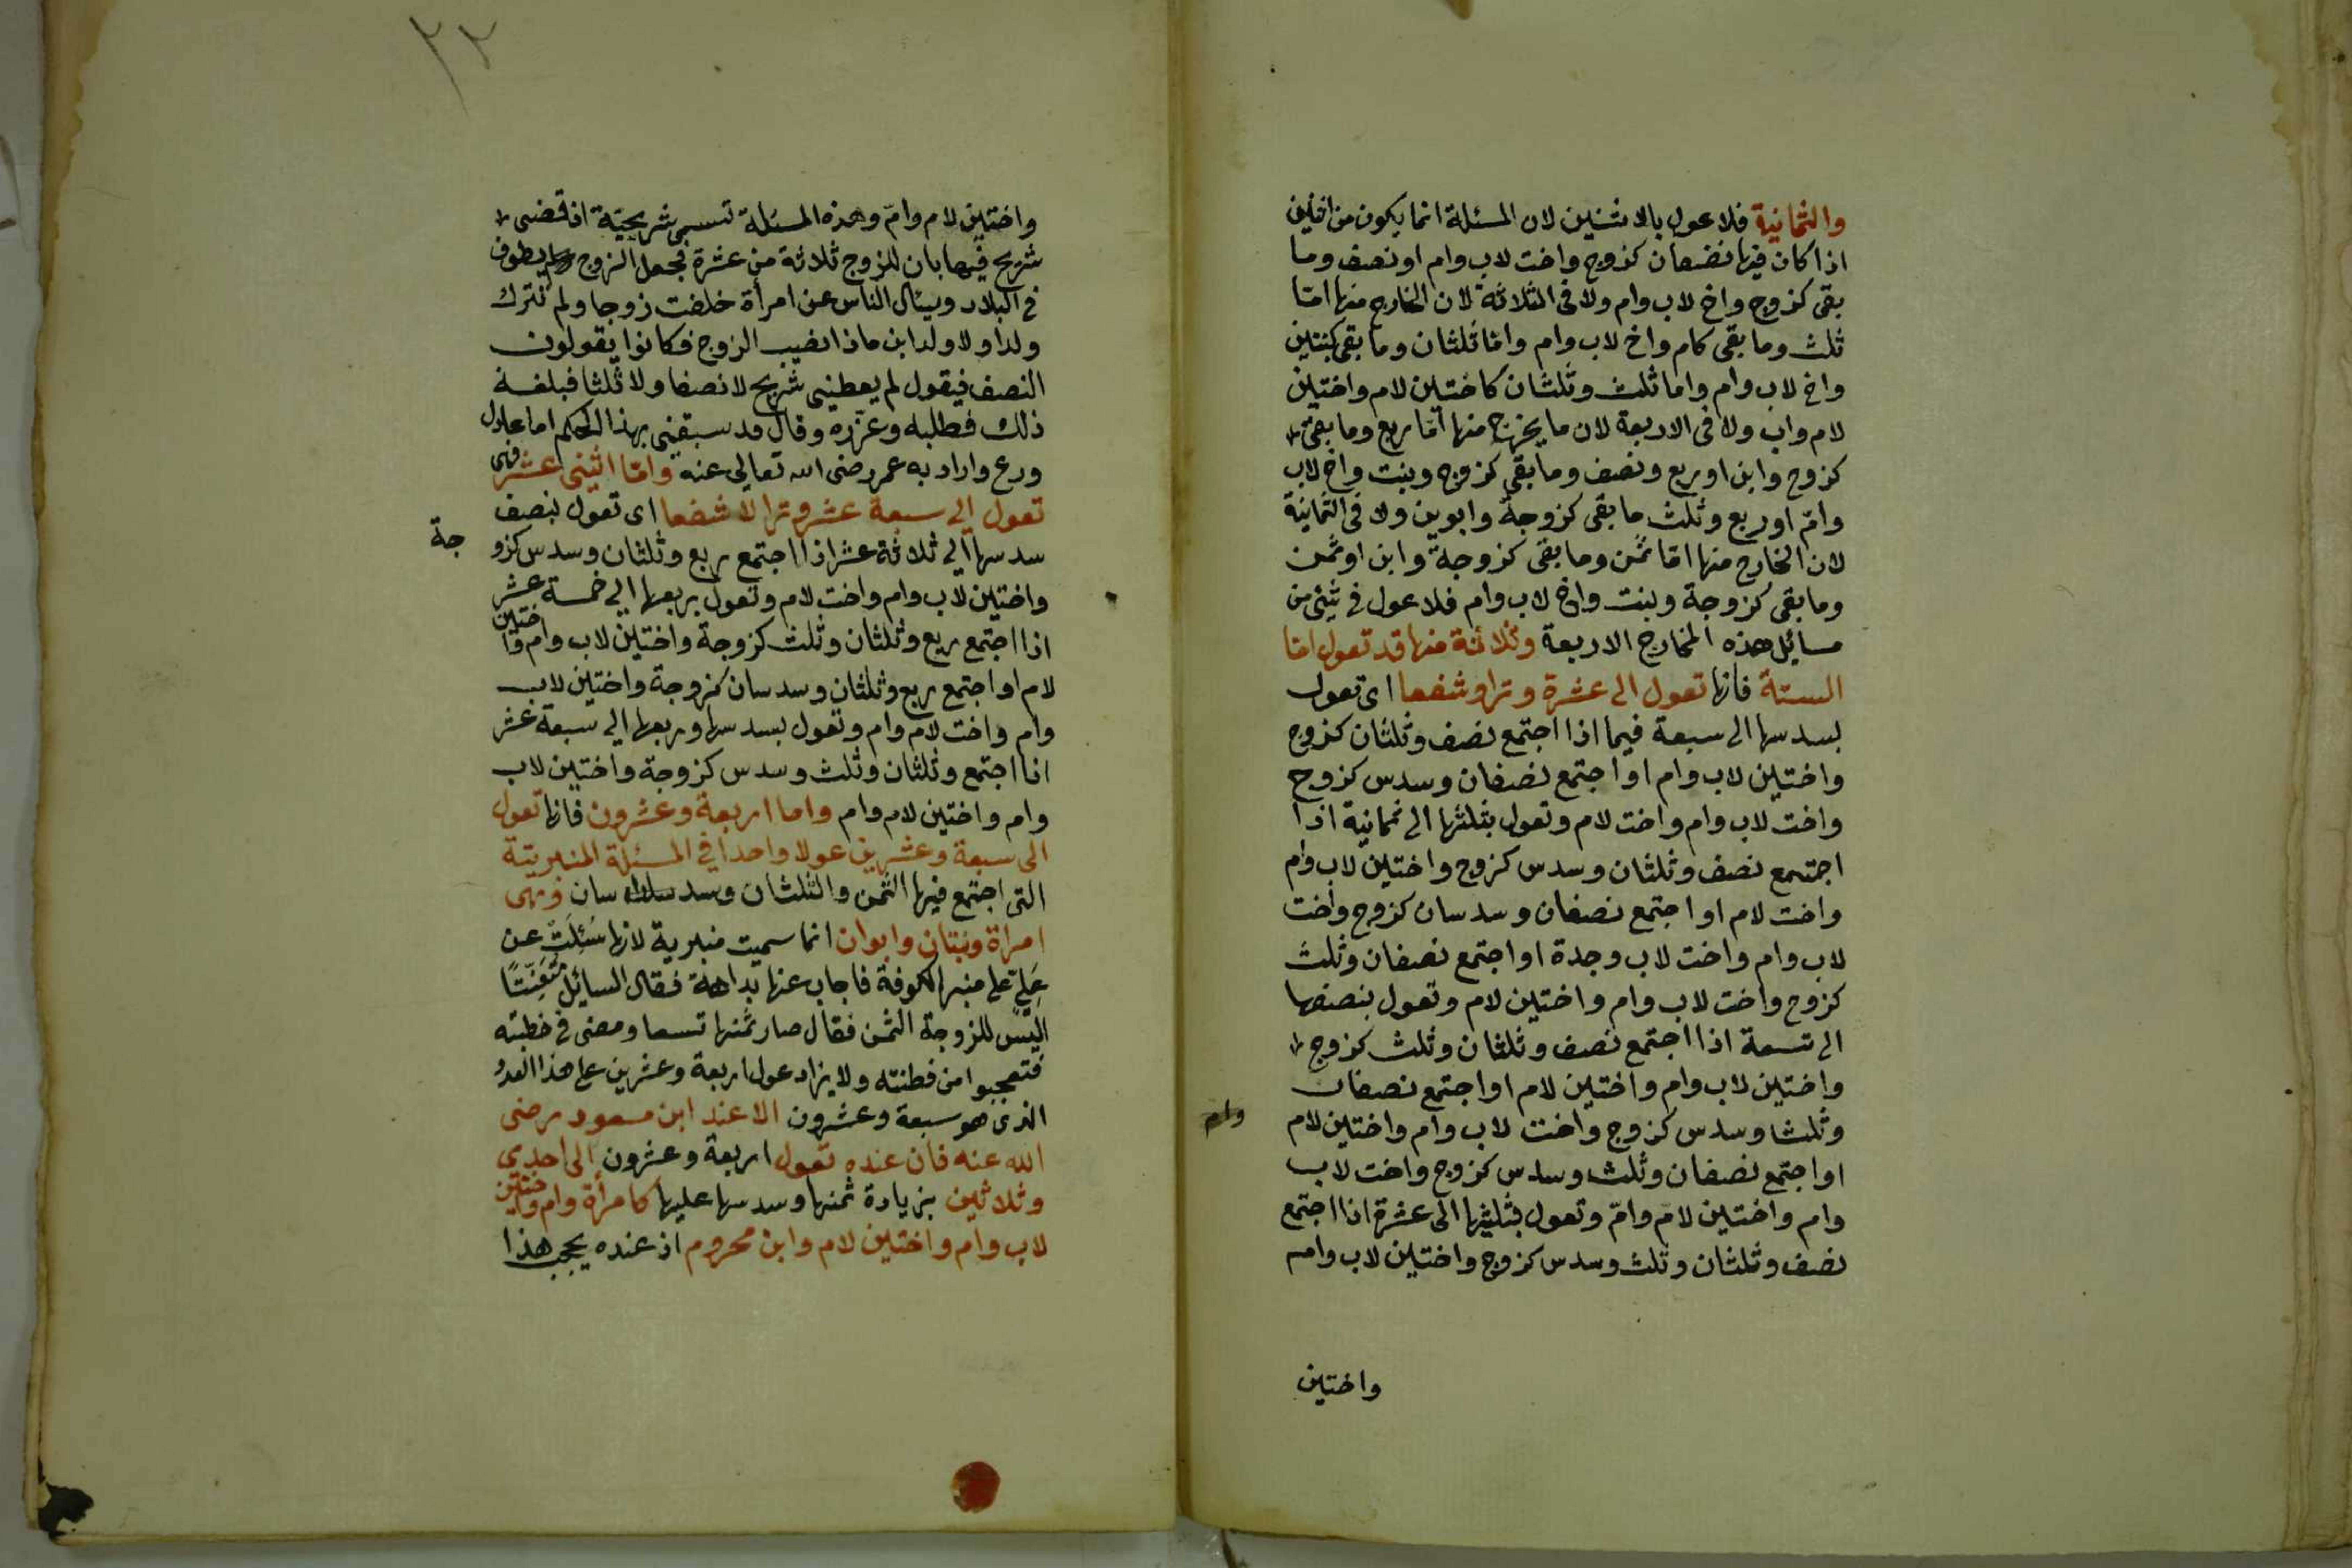 والثمانية فلا عول بالاثنين لان المسئلة انما يكون من اثنين
اذا كان فيها نصفان كزوج واخت لاب وام او نصف وما
بقى كزوج واخ لاب وام ولا فى الثلاثة لان الخارج منها امّا
ثلث وما بقى كام واخ لاب وام وامّا ثلثان وما بقى كبنتين
واخ لاب وام واما ثلث وثلثان كاختين لام واختين
لام واب ولا فى الاربعة لان ما يخرج منها امّا ربع وما بقى
كزوج وابن او ربع ونصف وما بقى كزوج وبنت واخ لاب
وامّ او ربع وثلث ما بقى كزوجة وابوين ولا فى الثمانية
لان الخارج منها امّا ثمن وما بقى كزوجة وابن او ثمن
وما بقى كزوجة وبنت واخ لاب وام فلا عول فى شئ من
مسائل هذه المخارج الاربعة وثلاثة منها قد تعول امّا
الستة فانها تعول الى عشرة وترا وشفعا اى تعول
بسدسها الى سبعة فيما اذا اجتمع نصف وثلثان كزوج
واختين لاب وام او اجتمع نصفان وسدس كزوج
واخت لاب وام واخت لام وتعول بثلثها الى ثمانية اذا
اجتمع نصف وثلثان وسدس كزوج واختين لاب وام
واخت لام او اجتمع نصفان وسدسان كزوج واخت
لاب وام واخت لاب وجدة او اجتمع نصفان وثلث
كزوج واخت لاب وام واختين لام وتعول بنصفها
الى تسعة اذا اجتمع نصف وثلثان وثلث كزوج
واختين لاب وام واختين لام او اجتمع نصفان
وثلثا وسدس كزوج واخت لاب وام واختين لام
وام
او اجتمع نصفان وثلث وسدس كزوج واخت لاب
وام واختين لام وامّ وتعول بثلثيها الى عشرة اذا اجتمع
نصف وثلثان وثلث وسدس كزوج واختين لاب وام
واختين
٢٢
واختين لام وامّ وهذه المسئلة تسمى شريحيّة اذ قضى
شريح فيها بان للزوج ثلاثة من عشرة فجعل الزوج يطوف
فى البلاد ويسئال الناس عن امرأة خلفت زوجا ولم تترك
ولدا ولا ولد ابن ماذا نصيب الزوج فكانوا يقولون
النصف فيقول لم يعطينى شريح لا نصفا ولا ثلثا فبلغه
ذلك فطلبه وعزّره وقال قد سبقنى بهذا الحكم امام عادل
ورع واراد به عمر رضى الله تعالى عنه وامّا اثنى عشر فهى
تعول الى سبعة عشر وترا لا شفعا اى تعول بنصف
سدسها الى ثلاثة عشر اذا اجتمع ربع وثلثان وسدس كزو
جة
واختين لاب وام واخت لام وتعول بربعها الى خمسة عشر
اذا اجتمع ربع وثلثان وثلث كزوجة واختين لاب وام واختين
لام او اجتمع ربع وثلثان وسدسان كزوجة واختين لاب
وام واخت لام وام وتعول بسدسها وربعها الى سبعة عشر
اذا اجتمع وثلثان وثلث وسدس كزوجة واختين لاب
وام واختين لام وام واما اربعة وعشرون فانها تعول
الى سبعة وعشرين عولا واحدا فى المسئلة المنبريّة
التى اجتمع فيها الثمن والثلثان وسدسان وهى
امراة وبنتان وابوان انما سميت منبرية لانها سُئِلَتْ عن
عَلِى على منبر الكوفة فاجاب عنها بداهة فقال السائل متعنّتًا
اليس للزوجة الثمن فقال صار ثمنها تسعا ومضى فى خطبته
فتعجبوا من فطنته ولا يزاد عول اربعة وعشرين على هذا القدر
الذى هو سبعة وعشرون الا عند ابن مسعود رضى
الله عنه فان عنده تعول اربعة وعشرون الى احدى
وثلاثين بزيادة ثمنها وسدسها عليها كامرأة وام واختين
لاب وام واختين لام وابن محروم اذ عنده يحجب هذا